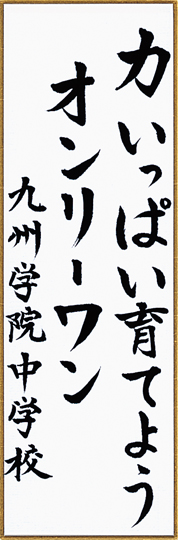 力いっぱい育てよう
オンリーワン
九州学院中学校